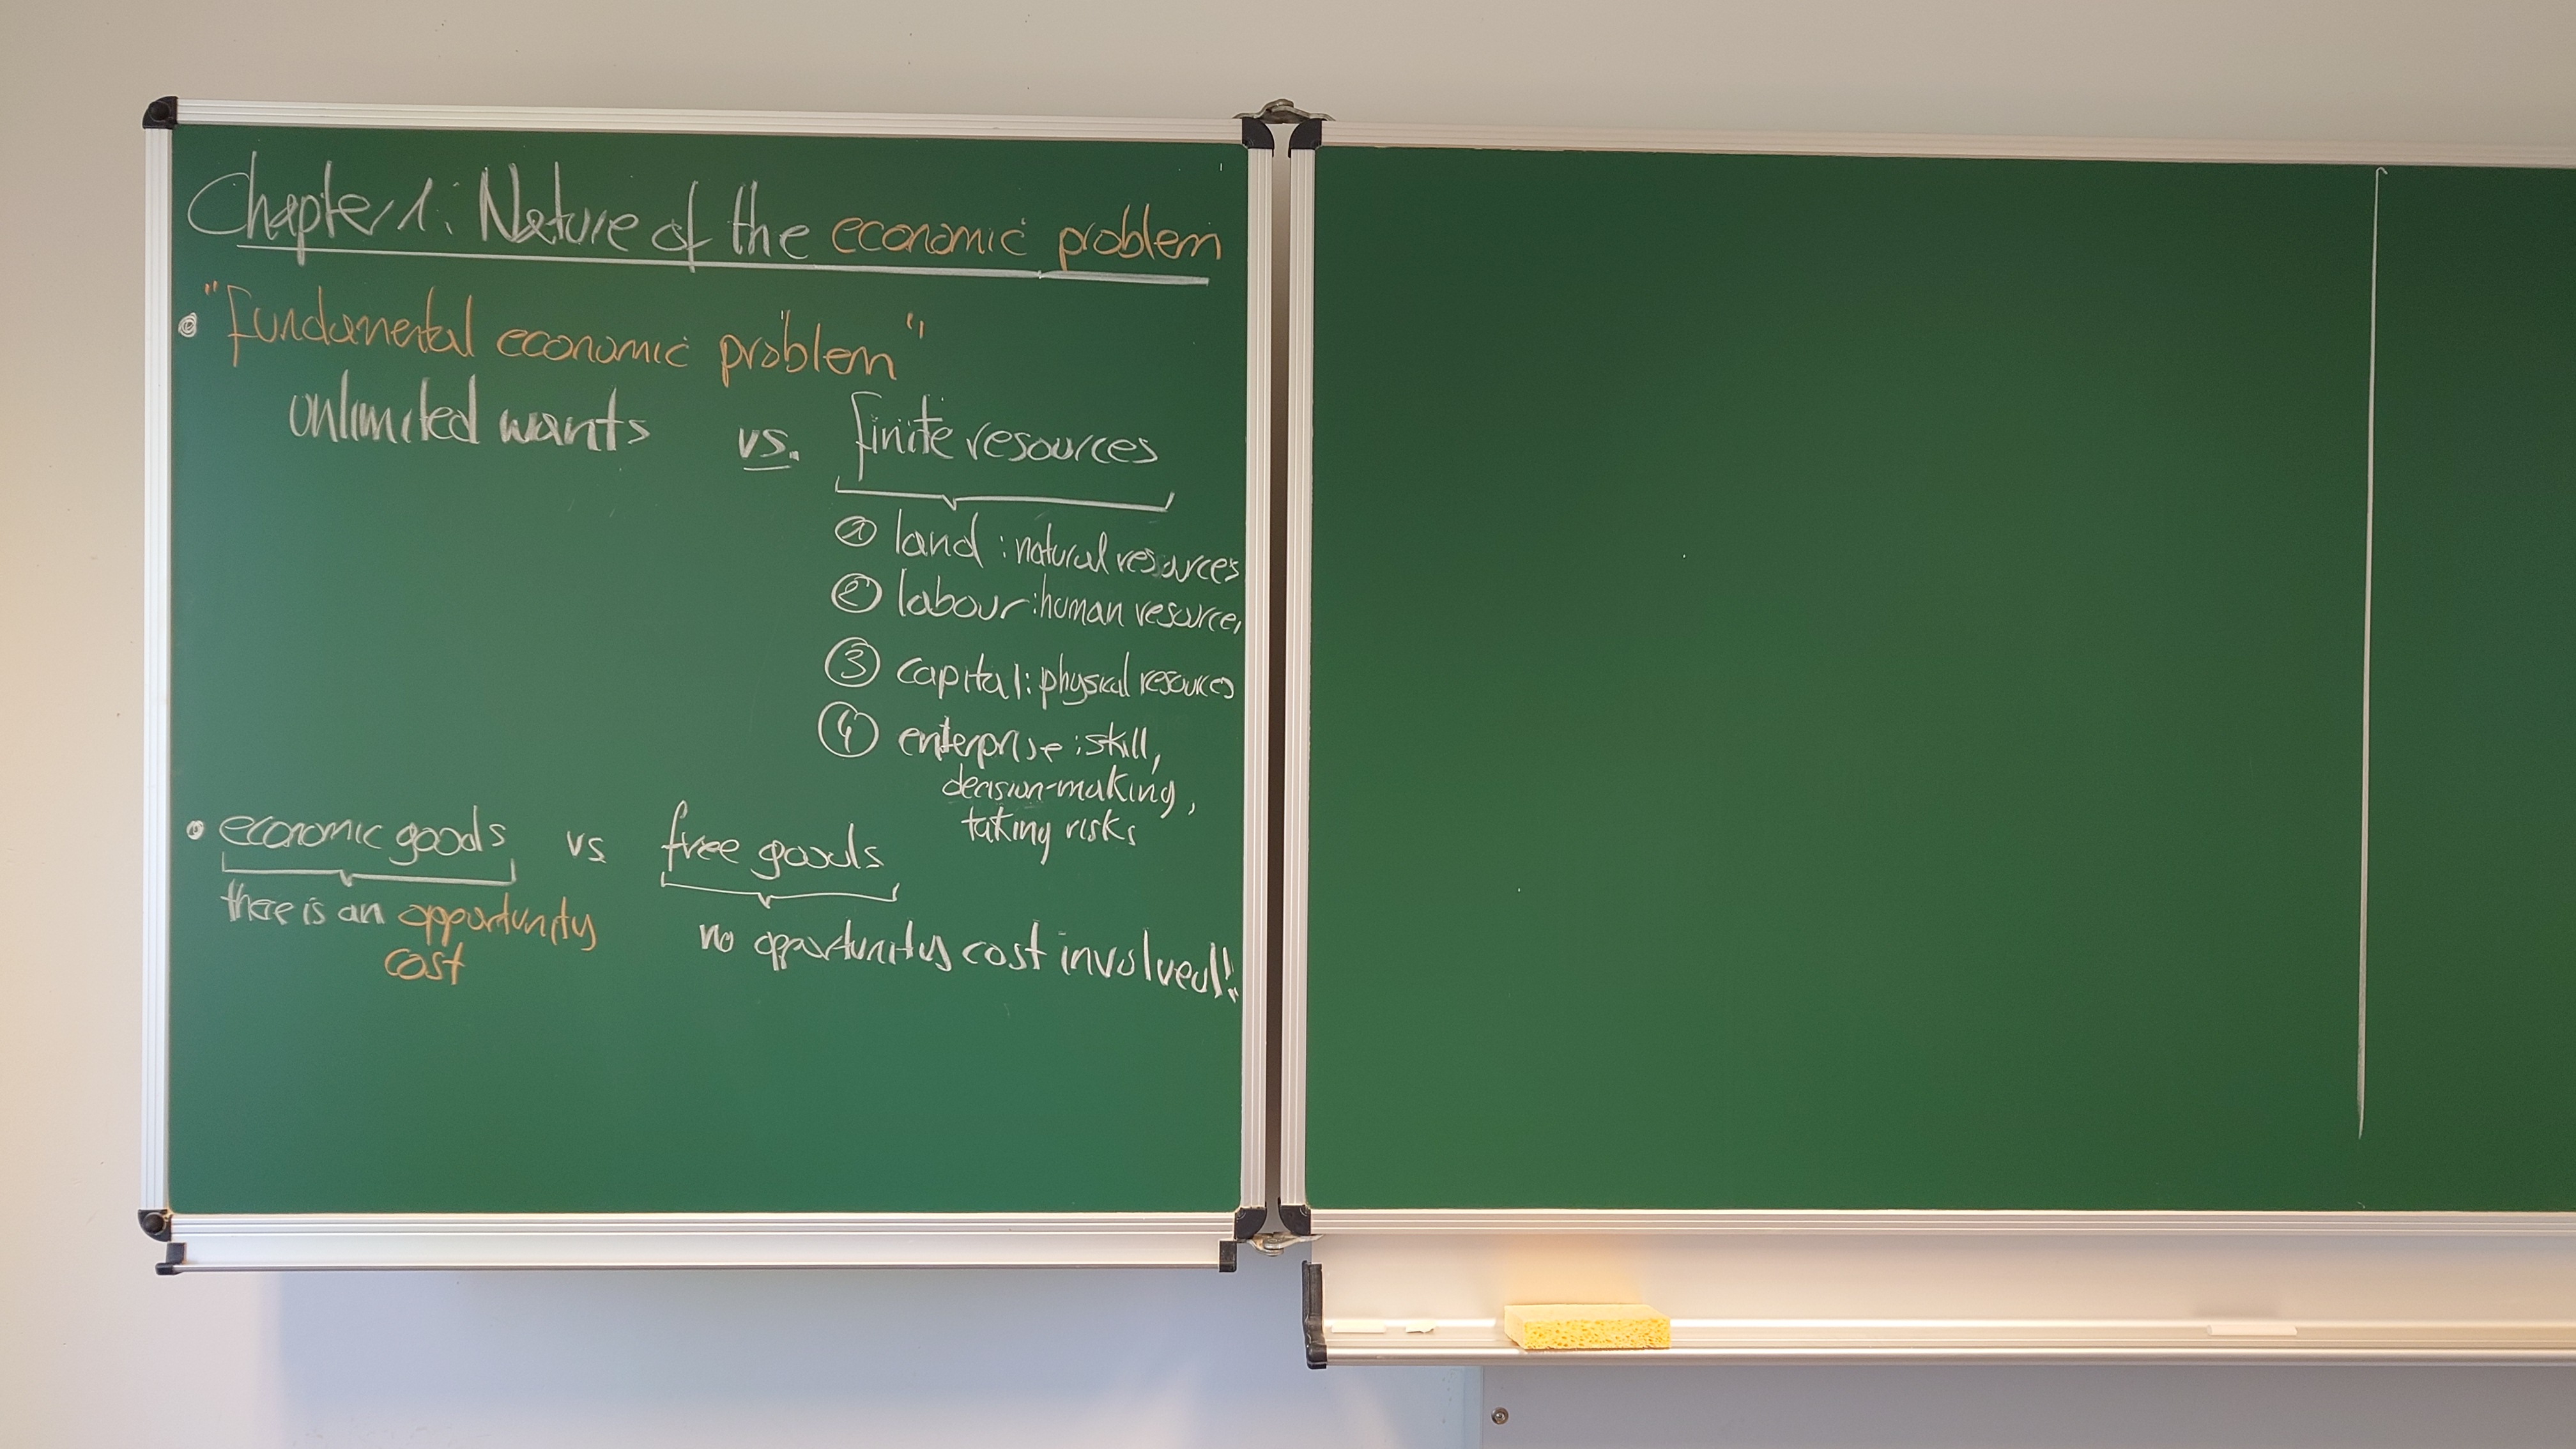 Chapter 1: Nature of the economic problem
• "fundamental economic problem"
unlimited wants vs. finite resources
① land : natural resources
② labour : human resources
③ capital : physical resources
④ enterprise : skill,
decision-making,
taking risks
• economic goods vs free goods
there is an opportunity
cost
no opportunity cost involved!!